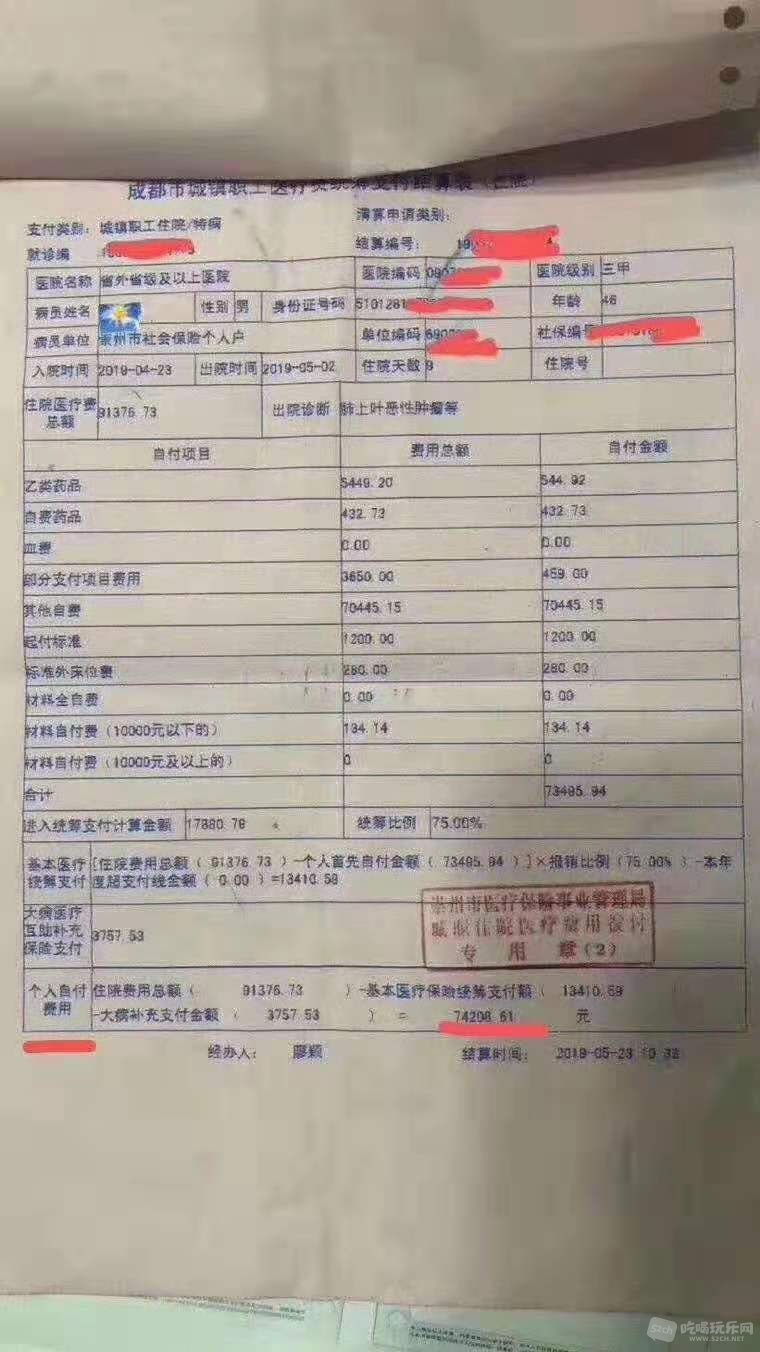 成都市城镇职工医疗费统筹支付结算表（住院）
支付类别： 城镇职工住院/特病 清算申请类别：
就诊编 结算编号：
医院名称 省外省级及以上医院 医院编码 医院级别 三甲
病员姓名 性别 男 身份证号码 510128 年龄 46
病员单位 崇州市社会保险个人户 单位编码 社保编号
入院时间 2019-04-23 出院时间 2019-05-02 住院天数 9 住院号
住院医疗费总额 91376.73 出院诊断 肺上叶恶性肿瘤等
自付项目 费用总额 自付金额
乙类药品 5449.20 544.92
自费药品 432.73 432.73
血费 0.00 0.00
部分支付项目费用 3650.00 459.00
其他自费 70445.15 70445.15
起付标准 1200.00 1200.00
标准外床位费 280.00 280.00
材料全自费 0.00 0.00
材料自付费（10000元以下的） 134.14 134.14
材料自付费（10000元及以上的） 0 0
合计 73495.94
进入统筹支付计算金额 17880.78 统筹比例 75.00%
基本医疗 [住院费用总额（ 91376.73 ）-个人首先自付金额（ 73495.94 ）]×报销比例（75.00% ）-本年
统筹支付 度超支付线金额（ 0.00 ）=13410.59
大病医疗
互助补充 3757.53
保险支付
崇州市医疗保险事业管理局
城职住院医疗费用拨付
专用章（2）
个人自付 住院费用总额（ 91376.73 ）-基本医疗保险统筹支付额（ 13410.59
费用 -大病补充支付金额（ 3757.53 ） = 74208.61 元
经办人： 廖颖 结算时间： 2019-05-23 10:38
52ch 吃喝玩乐网
WWW.52CH.NET